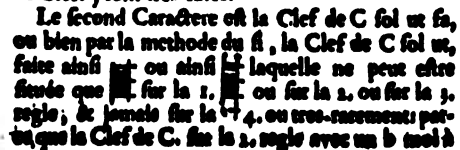 Le ſecond Caractere eſt la Clef de C ſol ut fa,
ou bien par la methode du ſi, la Clef de C ſol ut,
faite ainſi ou ainſi laquelle ne peut eſtre
ſituée que ſur la 1. ou ſur la 2. ou ſur la 3.
regle; & jamais ſur la 4. ou tres-rarement: par-
que la Clef de C. ſur la 2. regle avec un b mol à